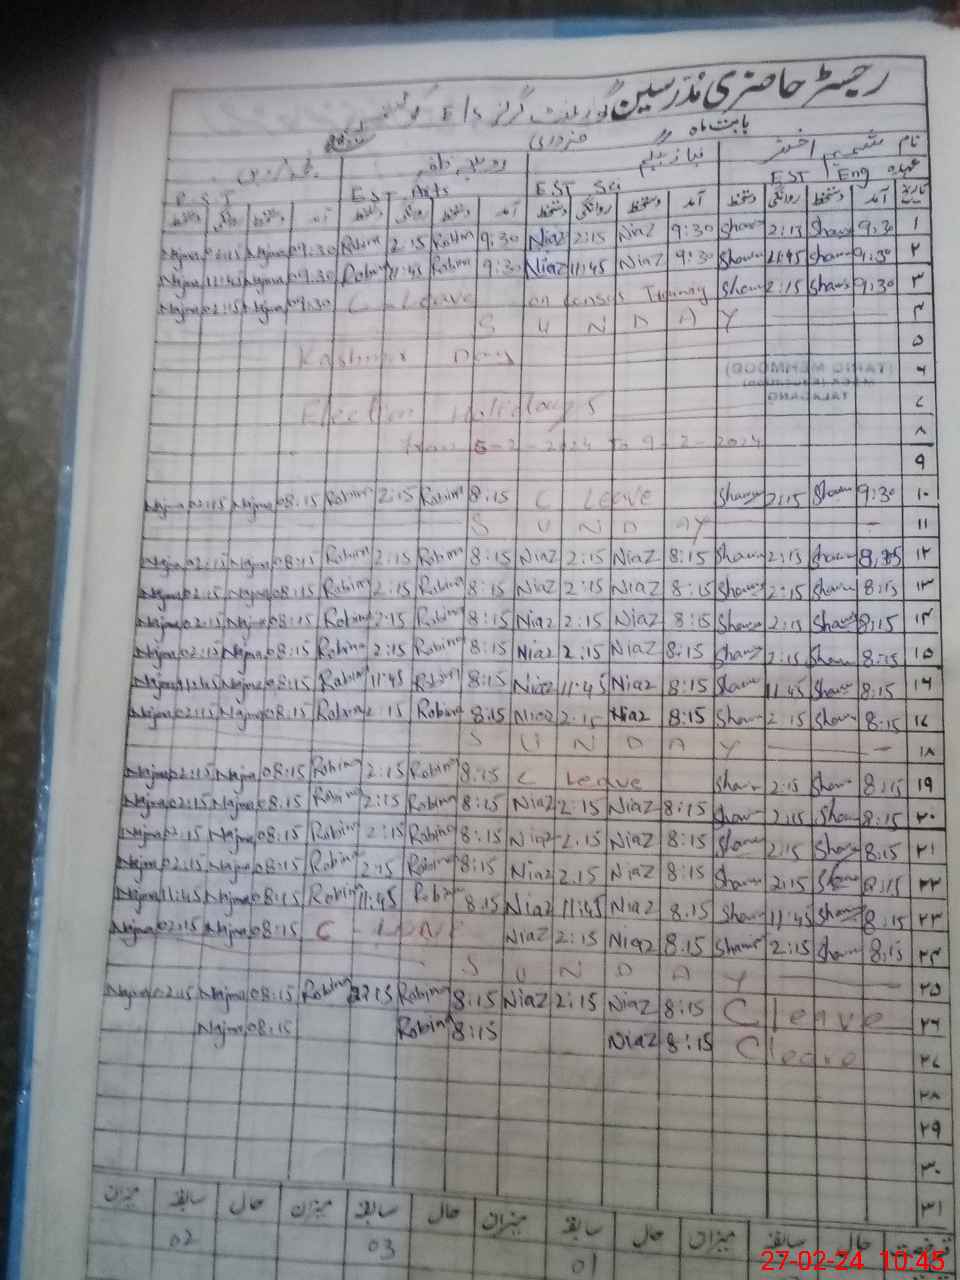 رجسٹر حاضری مدرسین گورنمنٹ گرلز E/S
بابت ماہ فروری
نام شمیم اختر نیاز بیگم روبینہ
عہدہ EST Eng EST Sci EST Arts P S T
تاریخ آمد دستخط روانگی دستخط آمد دستخط روانگی دستخط آمد دستخط روانگی دستخط آمد دستخط روانگی دستخط
۱ 9:30 Sham 2:15 Sham 9:30 Niaz 2:15 Niaz 9:30 Robina 2:15 Robina 09:30 Najma 02:15 Najma
۲ 9:30 Sham 11:45 Sham 9:30 Niaz 11:45 Niaz 9:30 Robina 11:45 Robina 09:30 Najma 11:45 Najma
۳ 9:30 Sham 2:15 Sham C Leave on census Training 09:30 Najma 02:15 Najma
۴ S U N D A Y
۵ Kashmir Day
۶ (TARIQ MEHMOOD)
TALAGANG
۷ Election Holidays
۸ from 6-2-2024 To 9-2-2024
۹
۱۰ 9:30 Sham 2:15 Sham C Leave 8:15 Robina 2:15 Robina 08:15 Najma 02:15 Najma
۱۱ S U N D A Y
۱۲ 8:15 Sham 2:15 Sham 8:15 Niaz 2:15 Niaz 8:15 Robina 2:15 Robina 08:15 Najma 02:15 Najma
۱۳ 8:15 Sham 2:15 Sham 8:15 Niaz 2:15 Niaz 8:15 Robina 2:15 Robina 08:15 Najma 02:15 Najma
۱۴ 8:15 Sham 2:15 Sham 8:15 Niaz 2:15 Niaz 8:15 Robina 2:15 Robina 08:15 Najma 02:15 Najma
۱۵ 8:15 Sham 2:15 Sham 8:15 Niaz 2:15 Niaz 8:15 Robina 2:15 Robina 08:15 Najma 02:15 Najma
۱۶ 8:15 Sham 11:45 Sham 8:15 Niaz 11:45 Niaz 8:15 Robina 11:45 Robina 08:15 Najma 11:45 Najma
۱۷ 8:15 Sham 2:15 Sham 8:15 Niaz 2:15 Niaz 8:15 Robina 2:15 Robina 08:15 Najma 02:15 Najma
۱۸ S U N D A Y
۱۹ 8:15 Sham 2:15 Sham C Leave 8:15 Robina 2:15 Robina 08:15 Najma 02:15 Najma
۲۰ 8:15 Sham 2:15 Sham 8:15 Niaz 2:15 Niaz 8:15 Robina 2:15 Robina 08:15 Najma 02:15 Najma
۲۱ 8:15 Sham 2:15 Sham 8:15 Niaz 2:15 Niaz 8:15 Robina 2:15 Robina 08:15 Najma 02:15 Najma
۲۲ 8:15 Sham 2:15 Sham 8:15 Niaz 2:15 Niaz 8:15 Robina 2:15 Robina 08:15 Najma 02:15 Najma
۲۳ 8:15 Sham 11:45 Sham 8:15 Niaz 11:45 Niaz 8:15 Robina 11:45 Robina 08:15 Najma 11:45 Najma
۲۴ 8:15 Sham 2:15 Sham 8:15 Niaz 2:15 Niaz C Leave 08:15 Najma 02:15 Najma
۲۵ S U N D A Y
۲۶ C leave 8:15 Niaz 2:15 Niaz 8:15 Robina 2:15 Robina 08:15 Najma 02:15 Najma
۲۷ C leave 8:15 Niaz 8:15 Robina 08:15 Najma
۲۸
۲۹
۳۰
۳۱
حال سابقہ میزان حال سابقہ میزان حال سابقہ میزان حال سابقہ میزان
01 03 02
27-02-24 10:45